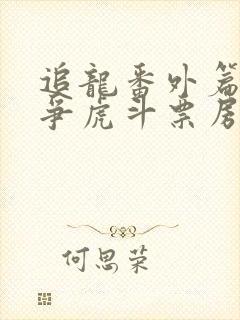 追龍番外篇
爭虎斗票房
何思荣